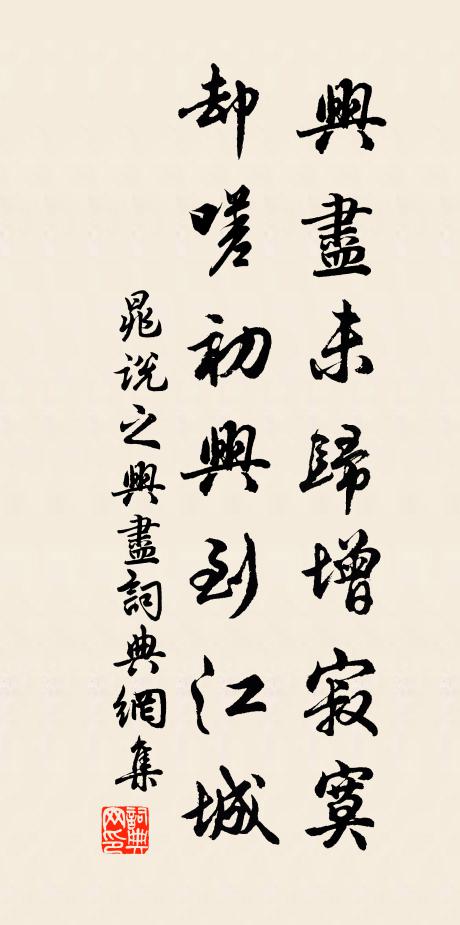 興盡未歸增寂寞
却嗟初興到江城
晁説之興盡詞典網集
詞典網印